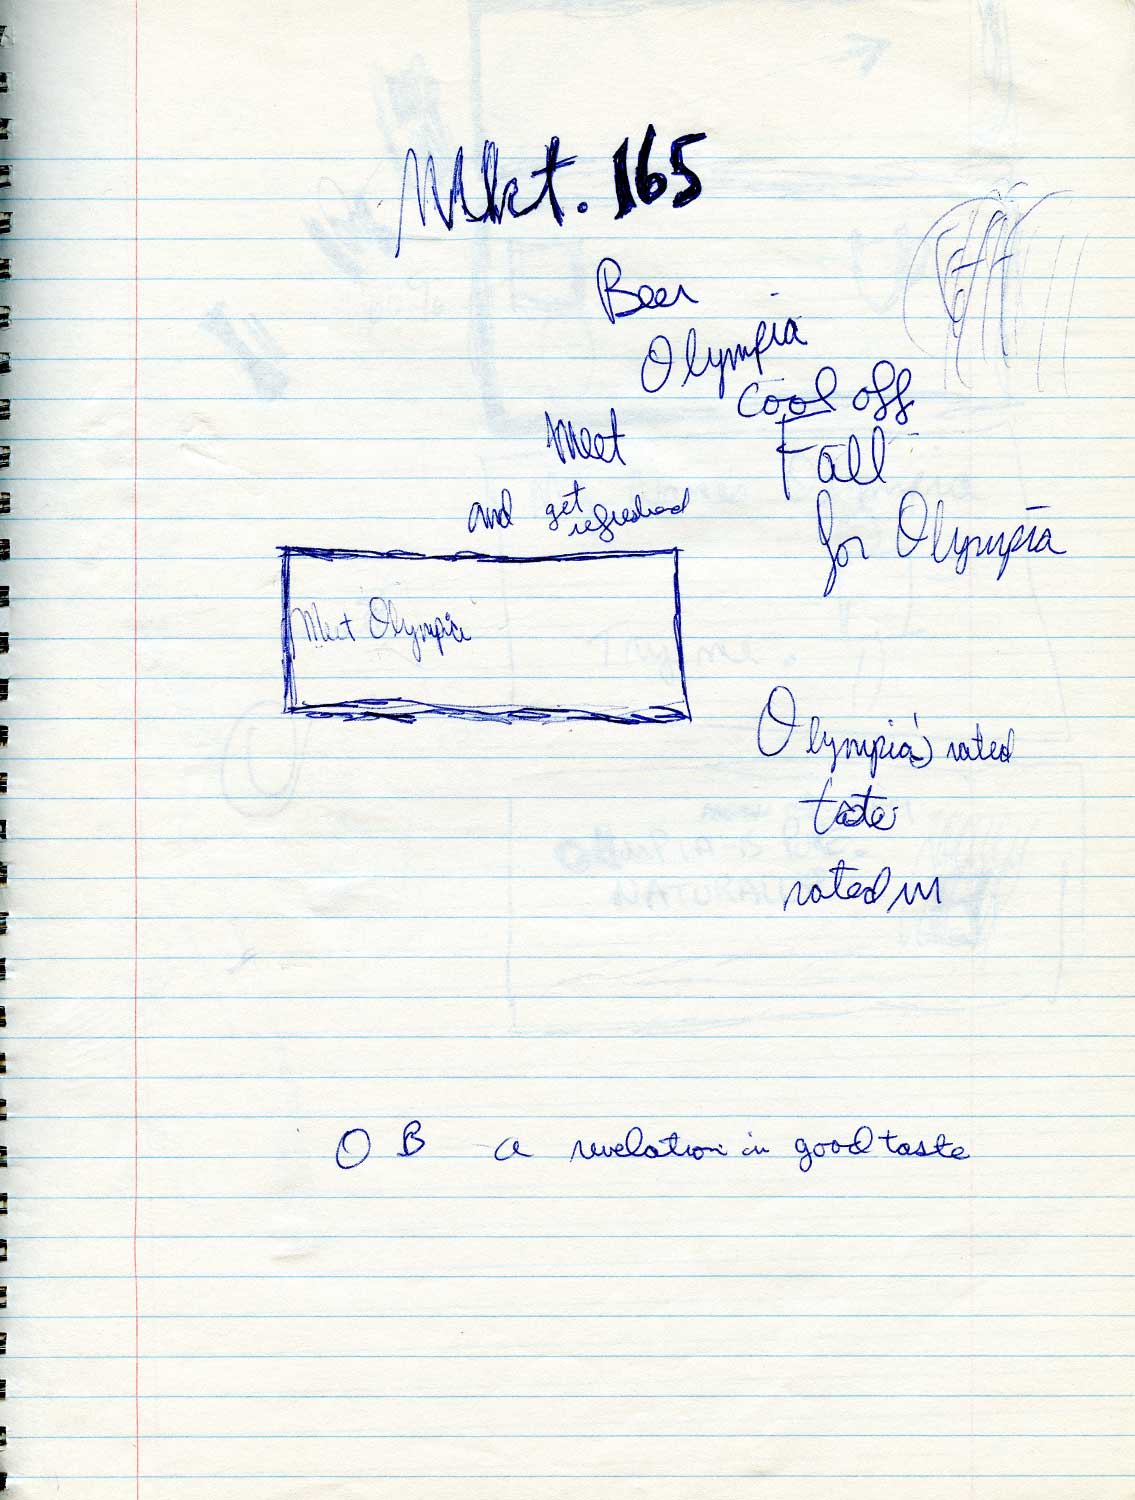 Mkt. 165
Beer
Olympia
Cool off
Meet
Fall
and get refreshed
for Olympia
Meet Olympia
Olympia's rated
taste
rated in
O B a revelation in good taste